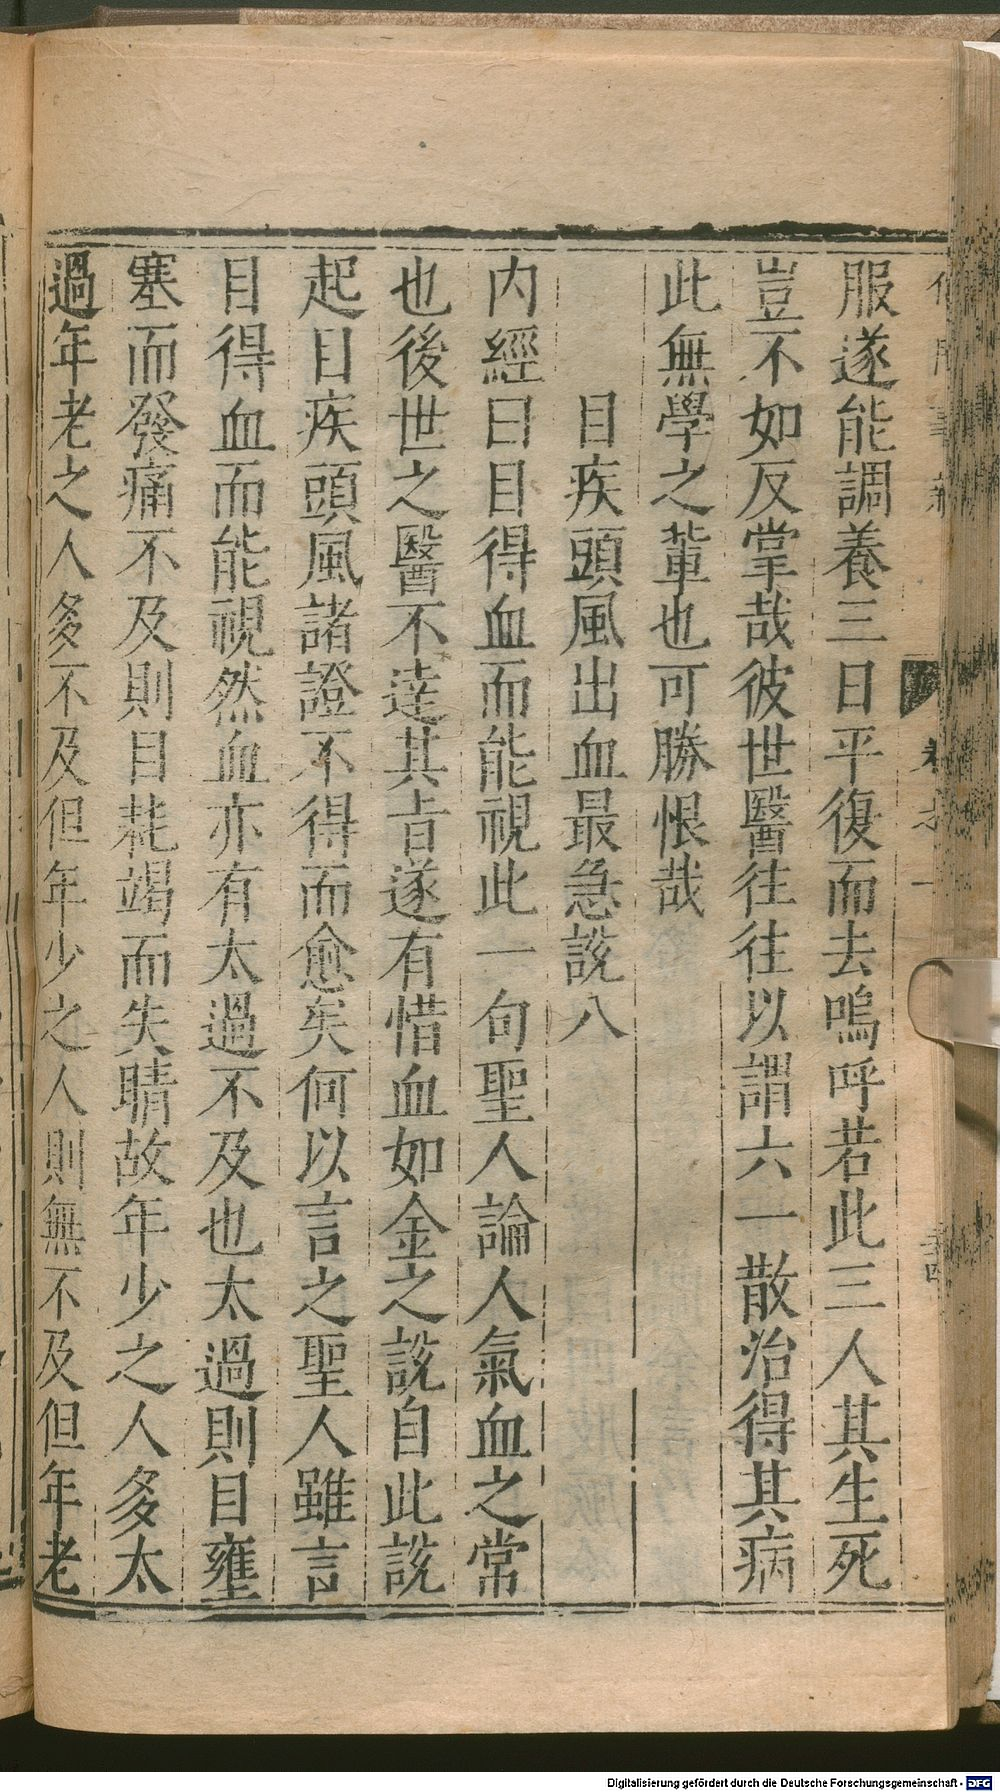 服遂能調養三日平復而去嗚呼若此三人其生死
豈不如反掌哉彼世醫往往以謂六一散治得其病
此無學之軰也可勝恨哉
目疾頭風出血最急說八
内經曰目得血而能視此一句聖人論人氣血之常
也後世之醫不達其旨遂有惜血如金之說自此說
起目疾頭風諸證不得而愈矣何以言之聖人雖言
目得血而能視然血亦有太過不及也太過則目壅
塞而發痛不及則目耗竭而失睛故年少之人多太
過年老之人多不及但年少之人則無不及但年老
Digitalisierung gefördert durch die Deutsche Forschungsgemeinschaft - DFG